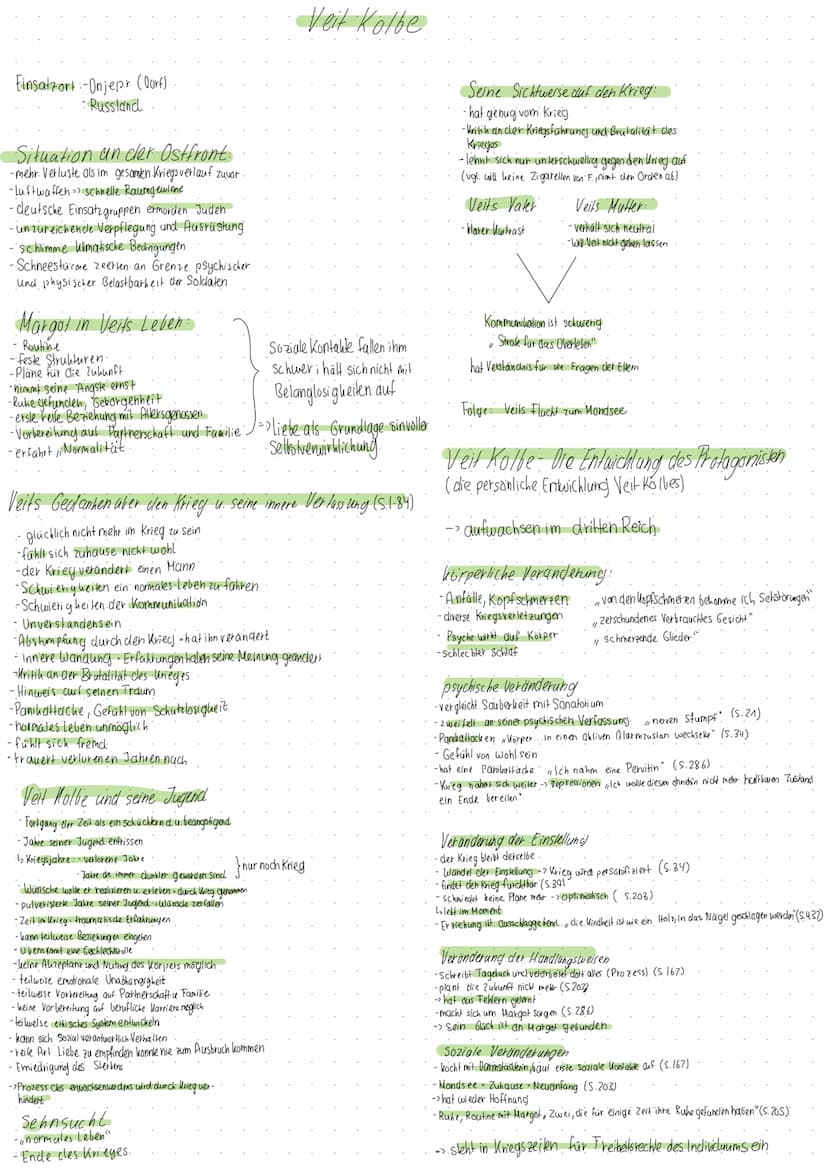 Veit Kolbe
Einsatzort: - Dnjepr (Dorf)
- Russland
Situation an der Ostfront:
- mehr Verluste als im gesamten Kriegsverlauf zuvor
- Luftwaffen => schnelle Raumgewinne
- deutsche Einsatzgruppen ermorden Juden
- unzureichende Verpflegung und Ausrüstung
- schlimme klimatische Bedingungen
- Schneestürme zerrten an Grenze psychischer
und physischer Belastbarkeit der Soldaten
Margot in Veits Leben:
- Routine
- feste Strukturen
- Pläne für die Zukunft
- nimmt seine Ängste ernst
- Ruhe gefunden, Geborgenheit
- erste reife Beziehung mit Altersgenossen
- Vorbereitung auf Partnerschaft und Familie
- erfährt „Normalität"
Soziale Kontakte fallen ihm
schwer; hält sich nicht mit
Belanglosigkeiten auf
=> Liebe als Grundlage sinvoller
Selbstverwirklichung
Veits Gedanken über den Krieg u. seine innere Verfassung (S.1-84)
- glücklich nicht mehr im Krieg zu sein
- fühlt sich zuhause nicht wohl
- der Krieg verändert einen Mann
- Schwierigkeiten ein normales Leben zu führen
- Schwierigkeiten der Kommunikation
- Unverstandensein
- Abstumpfung durch den Krieg - hat ihn verändert
- innere Wandlung - Erfahrungen haben seine Meinung geändert
- Kritik an der Brutalität des Krieges
- Hinweis auf seinen Traum
- Panikattacke, Gefühl von Schutzlosigkeit
- normales Leben unmöglich
- fühlt sich fremd
- trauert verlorenen Jahren nach
Veit Kolbe und seine Jugend
- Fortgang der Zeit als einschüchternd u. beängstigend
- Jahre seiner Jugend entrissen
↳ Kriegsjahre = verlorene Jahre
- Jahre die immer dunkler geworden sind
} nur noch Krieg
- Wünsche wollte er realisieren u. erleben - durch Krieg genommen
- pulverisierte Jahre seiner Jugend - Wünsche zerfallen
- Zeit im Krieg - traumatische Erfahrungen
- kann teilweise Beziehungen eingehen
- Übernimmt eine Geschlechtsrolle
- keine Akzeptanz und Nutzung des Körpers möglich
- teilweise emotionale Unabhängigkeit
- teilweise Vorbereitung auf Partnerschaft u. Familie
- keine Vorbereitung auf berufliche Karriere möglich
- teilweise ethisches System entwickeln
- kann sich sozial verantwortlich verhalten
- reife Art Liebe zu empfinden konnte nie zum Ausbruch kommen
- Erniedrigung des Sterbens
-> Prozess des erwachsenwerdens wird durch Krieg ver-
hindert
Sehnsucht
- „normales Leben"
- Ende des Krieges
Seine Sichtweise auf den Krieg:
- hat genug vom Krieg
- Kritik an der Kriegsführung und Brutalität des
Krieges
- lehnt sich nur unterschwellig gegen den Krieg auf
(vgl. will keine Zigaretten von F., nimt den Orden ab)
Veits Vater
- klarer Kontrast
Veits Mutter:
- verhält sich neutral
- will Veit nicht gehen lassen
Kommunikation ist schwierig
„Strafe für das Überleben"
hat Verständnis für die Fragen der Eltern
Folge: Veits Flucht zum Mondsee
Veit Kolbe - Die Entwicklung des Protagonisten
(die persönliche Entwicklung Veit Kolbes)
-> aufwachsen im dritten Reich
körperliche Veränderung:
- Anfälle, Kopfschmerzen „von den Kopfschmerzen bekomme ich Sehstörungen"
- diverse Kriegsverletzungen „zerschundenes verbrauchtes Gesicht"
- Psyche wirkt auf Körper „schmerzende Glieder"
- schlechter Schlaf
psychische Veränderung
- vergleicht Sauberkeit mit Sanatorium
- zweifelt an seiner psychischen Verfassung „nerven Stumpf" (S.21)
- Panikattacken „Körper ... in einen aktiven Alarmzustan wechselte" (S.34)
- Gefühl von Wohl sein
- hat eine Panikattacke „Ich nahm eine Pervitin" (S.286)
- Krieg nähert sich weiter -> Depressionen „Ich wollte diesem ohnehin nicht mehr haltbaren Zustand
ein Ende bereiten"
Veränderung der Einstellung
- der Krieg bleibt derselbe
- Wandel der Einstellung -> Krieg wird personifiziert (S.34)
- findet den Krieg furchtbar (S.39)
- schmiedet keine Pläne mehr -> optimistisch (S.203)
↳ lebt im Moment
- Erziehung ist Ausschlaggebend „die Kindheit ist wie ein Holz, in das Nägel geschlagen werden" (S.432)
Veränderung der Handlungsweisen
- schreibt Tagebuch und verarbeitet dort alles (Prozess) (S.167)
- plant die Zukunft nicht mehr (S.202)
-> hat aus Fehlern gelernt
- macht sich um Margot sorgen (S.286)
-> Sein Glück ist an Margot gebunden
Soziale Veränderungen
- kocht mit Darmstädterin, baut erste soziale Kontakte auf (S.167)
- Mondsee = Zuhause = Neuanfang (S.203)
-> hat wieder Hoffnung
- Ruhe, Routine mit Margot „Zwei, die für einige Zeit ihre Ruhe gefunden haben" (S.205)
-> steht in Kriegszeiten für Freiheitsrechte des Individuums ein